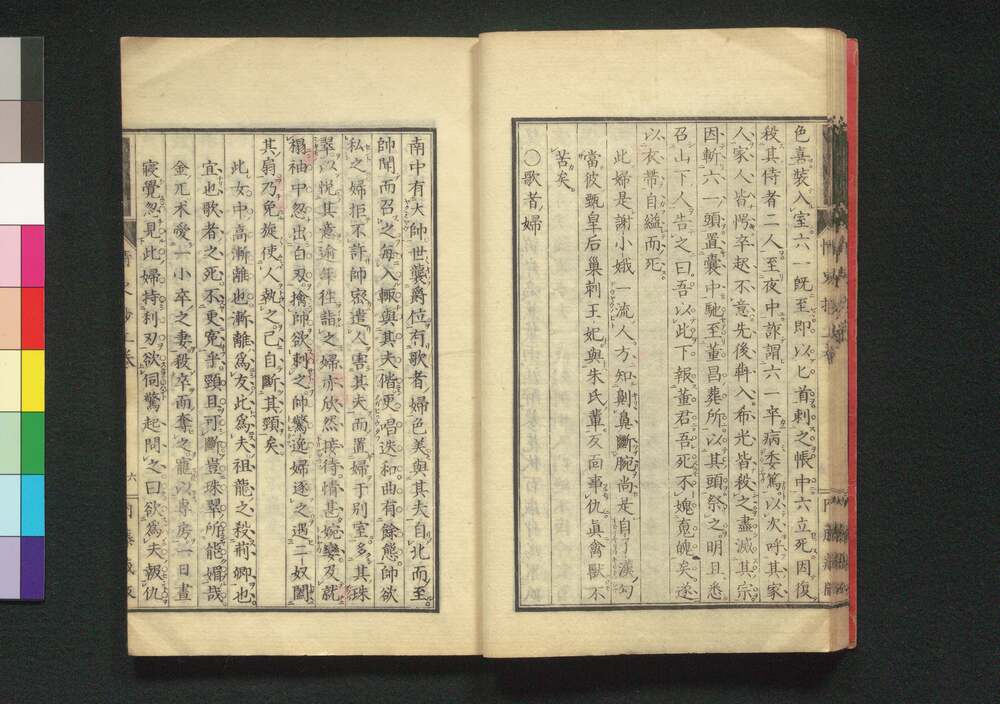 色喜裝入室六一既至即以匕首刺之帳中六立死因復
殺其侍者二人至夜中詐謂六一卒病委篤以次呼其家
人家人皆愕卒起不意先後奔入布光皆殺之盡滅其宗
因斬六一頭置囊中馳至董昌葬所以其頭祭之明且悉
召山下人告之曰吾以此下報董君吾死不媿䰟魄矣遂
以衣帶自縊而死
此婦是謝小娥一流人方知劓鼻斷腕尚是自了漢勾
當彼甄皇后巢刺王妃與朱氏輩反面事仇真禽獸不
若矣
○歌者婦
南中有大帥世襲爵位有歌者婦色美與其夫自北而至
帥聞而召之每入輒與其夫偕更唱迭和曲有餘態帥欲
私之婦拒不許帥密遣人害其夫而置婦于別室多其珠
翠以悅其意逾年往詣之婦亦欣然接待情甚婉孌及就
榻袖中忽出白刃擒帥欲刺之帥驚逸婦逐之遇二奴闔
其扇乃免旋使人執之已自斷其頸矣
此女中高漸離也漸離為友此為夫祖龍之殺荊卿也
宜也歌者之死不更冤乎頸且可斷豈珠翠所能媚哉
金兀朮愛一小卒之妻殺卒而奪之寵以專房一日晝
寢覺忽見此婦持利刃欲伺驚起問之曰欲為夫報仇
六